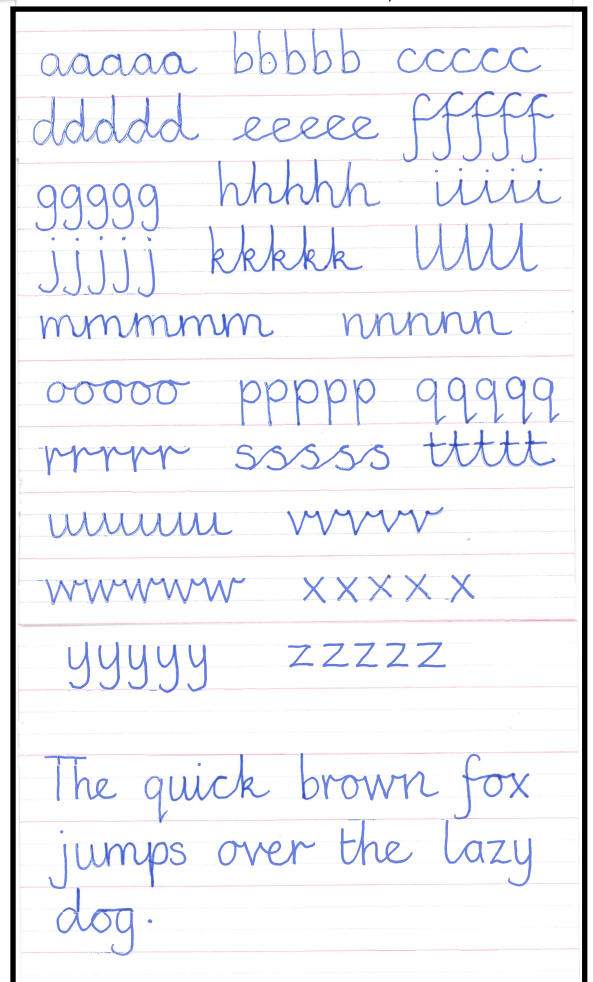 aaaaa bbbbb ccccc
ddddd eeeee fffff
ggggg hhhhh iiiii
jjjjj kkkkk lllll
mmmmm nnnnn
ooooo ppppp qqqqq
rrrrr sssss ttttt
uuuuu vvvvv
wwwww xxxxx
yyyyy zzzzz
The quick brown fox
jumps over the lazy
dog.